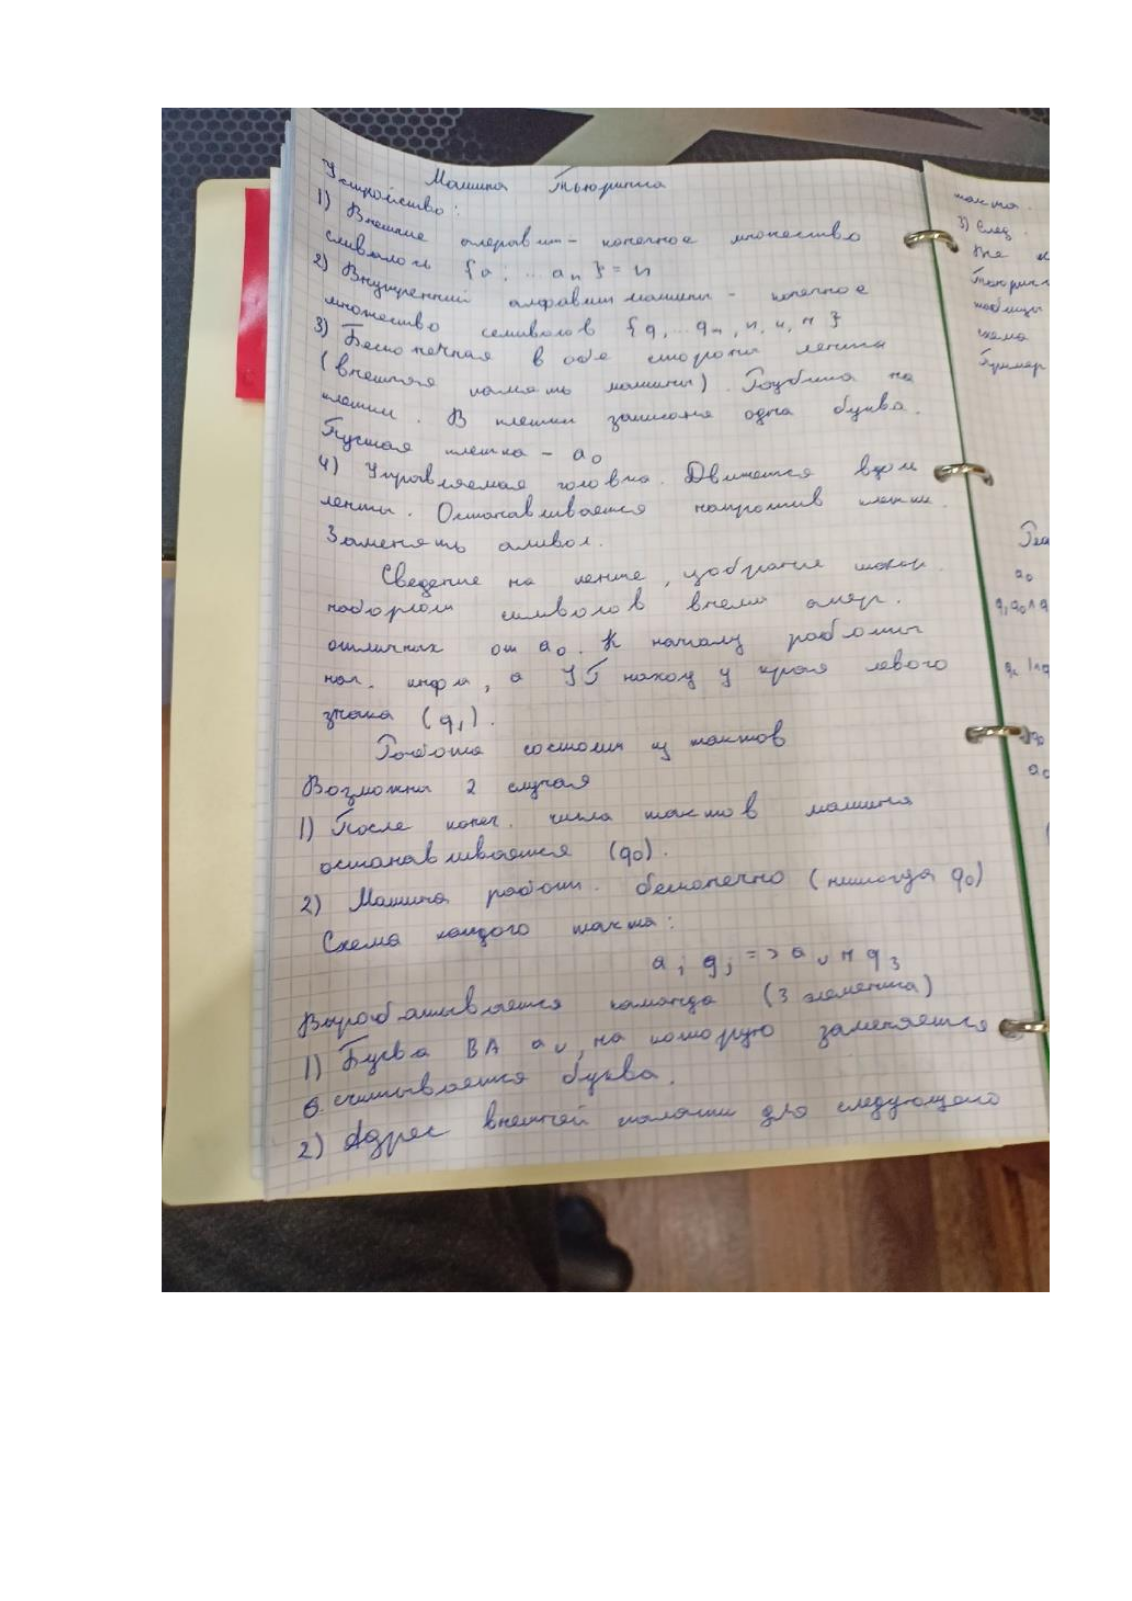 Машина Тьюринга
Устройство:
1) Внешние алфавит - конечное множество
символов {a, ... an} = n
2) Внутренний алфавит машины - конечное
множество семиволов {q, ... qm, п, л, н}
3) Бесконечная в обе стороны лента
(внешняя память машины). на
клетки. В клетки записана одна буква.
Пустая клетка - a0
4) Управляемая головка. Движется вдоль
ленты. Останавливается напротив клетки.
Заменять символ.
Сведение на ленте,
набором символов внеш алф.
отличных от a0. К началу работы
нач. инфм, а УГ наход у края левого
знака (q1).
Работа состоит из тактов
Возможны 2 случая
1) После конеч. числа тактов машина
останавливается (q0).
2) Машина работ. бесконечно (никогда q0)
Схема каждого такта:
ai qj => av п q3
Вырабатывается команда (3 элемента)
1) Буква ВА av, на которую заменяется
считывается буква.
2) Адрес внешней памяти для следующего
такта.
3) След
Же
Тьюринг
таблицы
схема
Пример
a0